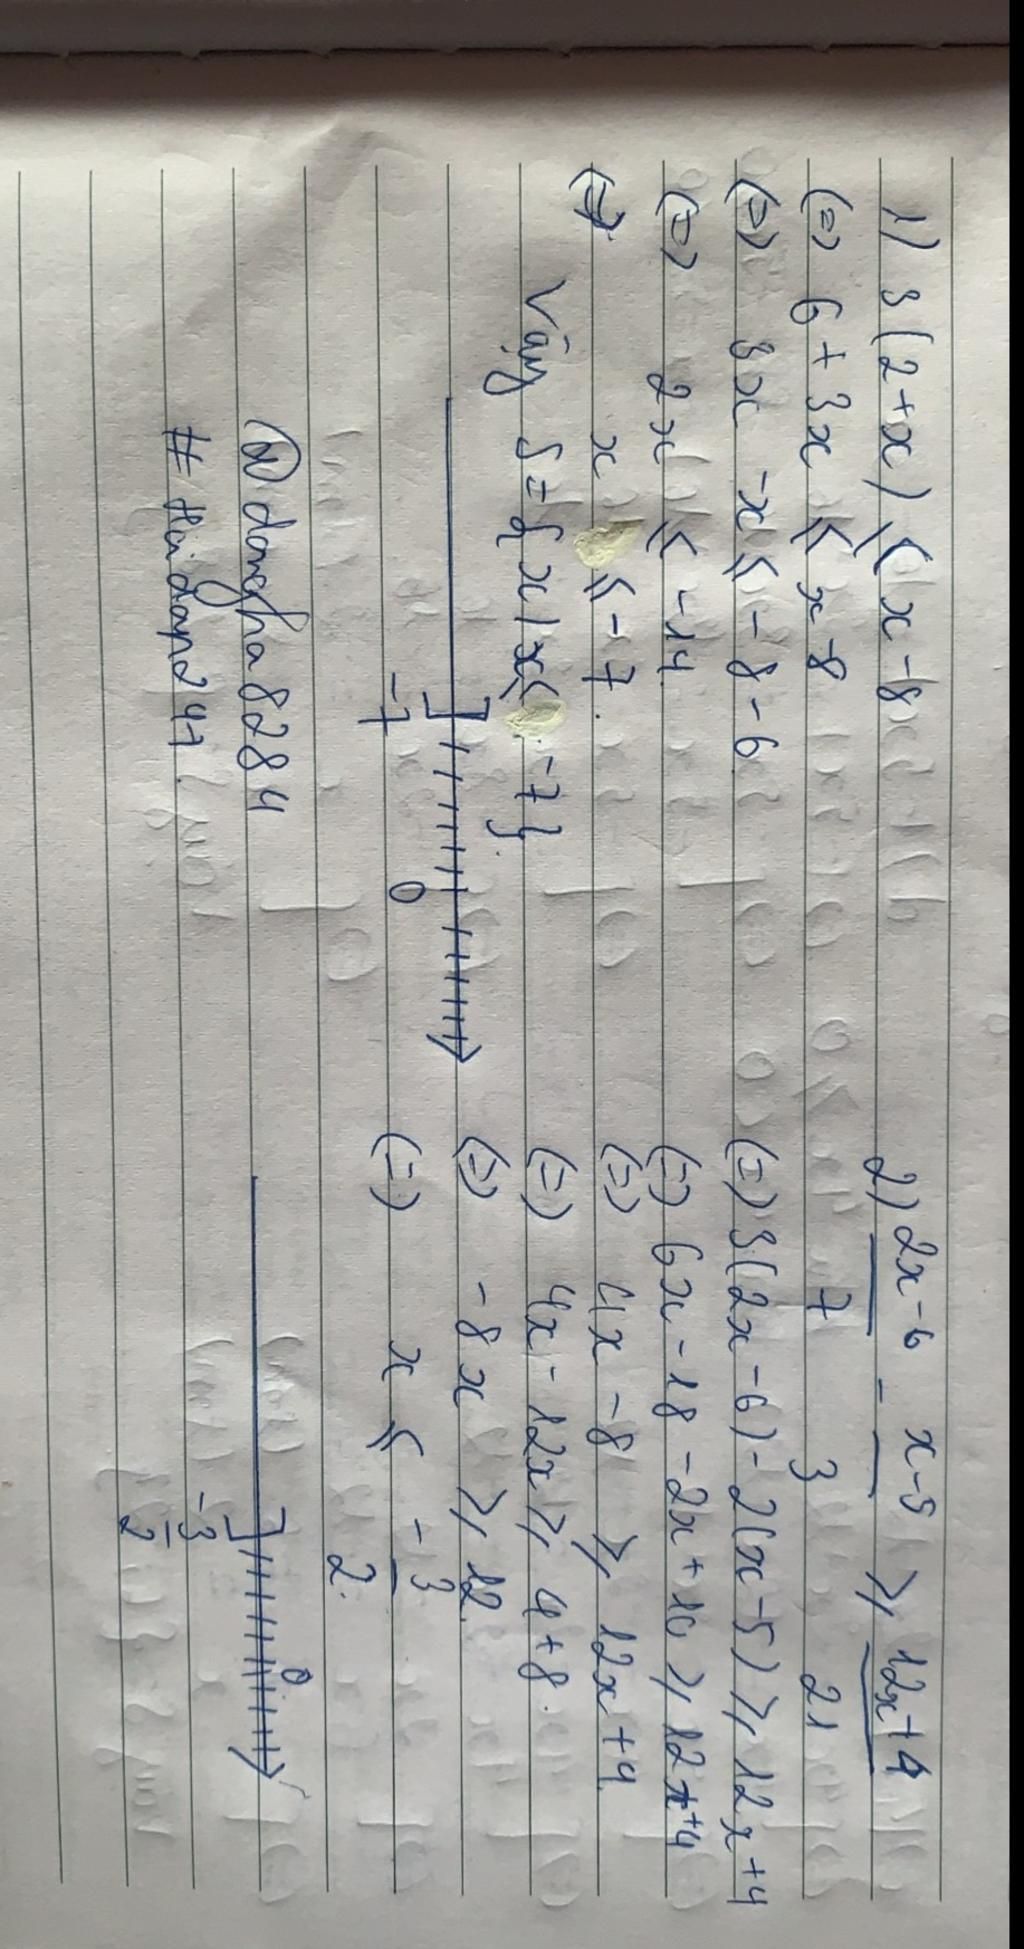 1) 3(2+x) ⩽ x-8
(=) 6+3x ⩽ x-8
(=) 3x -x ⩽ -8-6
(=) 2x ⩽ -14
(=) x ⩽ -7.
Vậy S={x/x⩽ -7}.
-7 0
@dongha8284
# Hoidap247.
2) 2x-6 - x-5 ⩾ 12x+4
7 3 21
(=) 3(2x-6)-2(x-5) ⩾ 12x+4
(=) 6x-18-2x+10 ⩾ 12x+4
(=) 4x-8 ⩾ 12x+4
(=) 4x-12x ⩾ 4+8.
(=) -8x ⩾ 12
(=) x ⩽ -3
2.
0
-3
2